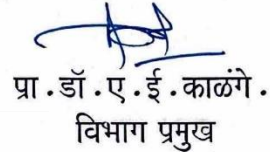 प्रा.डॉ.ए.ई.काळंगे.
विभाग प्रमुख